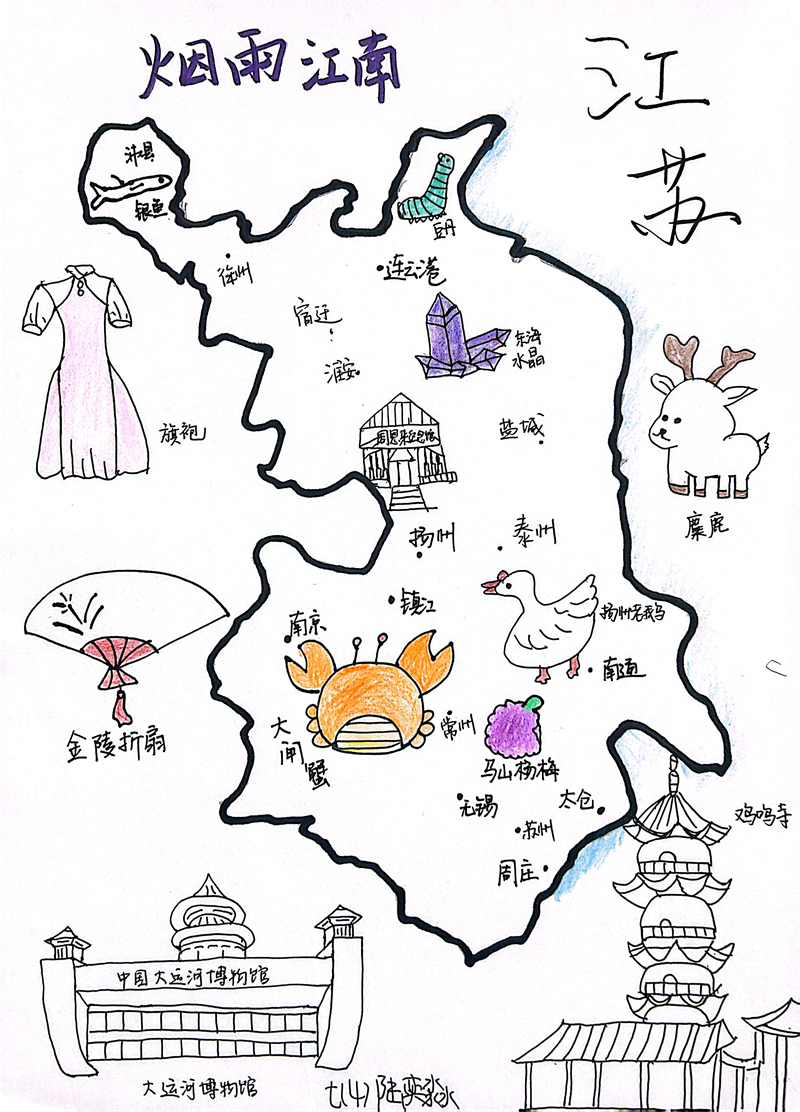 烟雨江南
江苏
沛县
银鱼
豆丹
徐州
连云港
宿迁
东海
水晶
淮安
旗袍
周恩来纪念馆
盐城
麋鹿
扬州
泰州
镇江
扬州老鹅
南京
南通
金陵折扇
大闸蟹
常州
马山杨梅
无锡
太仓
苏州
周庄
鸡鸣寺
中国大运河博物馆
大运河博物馆
七(4) 陆奕